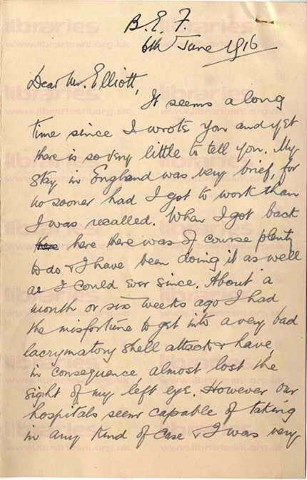 B. E. F.
6th June 1916
Dear Mr. Elliott,
It seems a long
time since I wrote you and yet
there is so very little to tell you. My
stay in England was very brief, for
no sooner had I got to work than
I was recalled. When I got back
here there was of course plenty
to do & I have been doing it as well
as I could ever since. About a
month or six weeks ago I had
the misfortune to get into a very bad
lacrymatory shell attack & have,
in consequence almost lost the
sight of my left eye. However our
hospitals seem capable of taking
in any kind of case & I was very